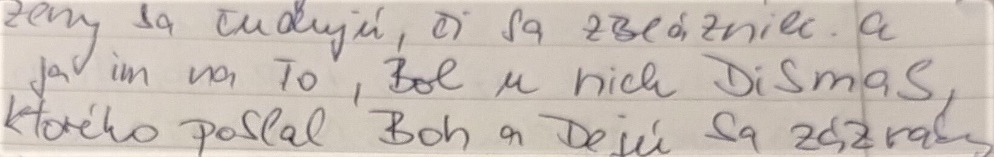 ženy sa čudujú, či sa zbláznil. a
ja im na To, Bol u nich DiSmaS,
ktorého poslal Boh a Dejú sa zázraky